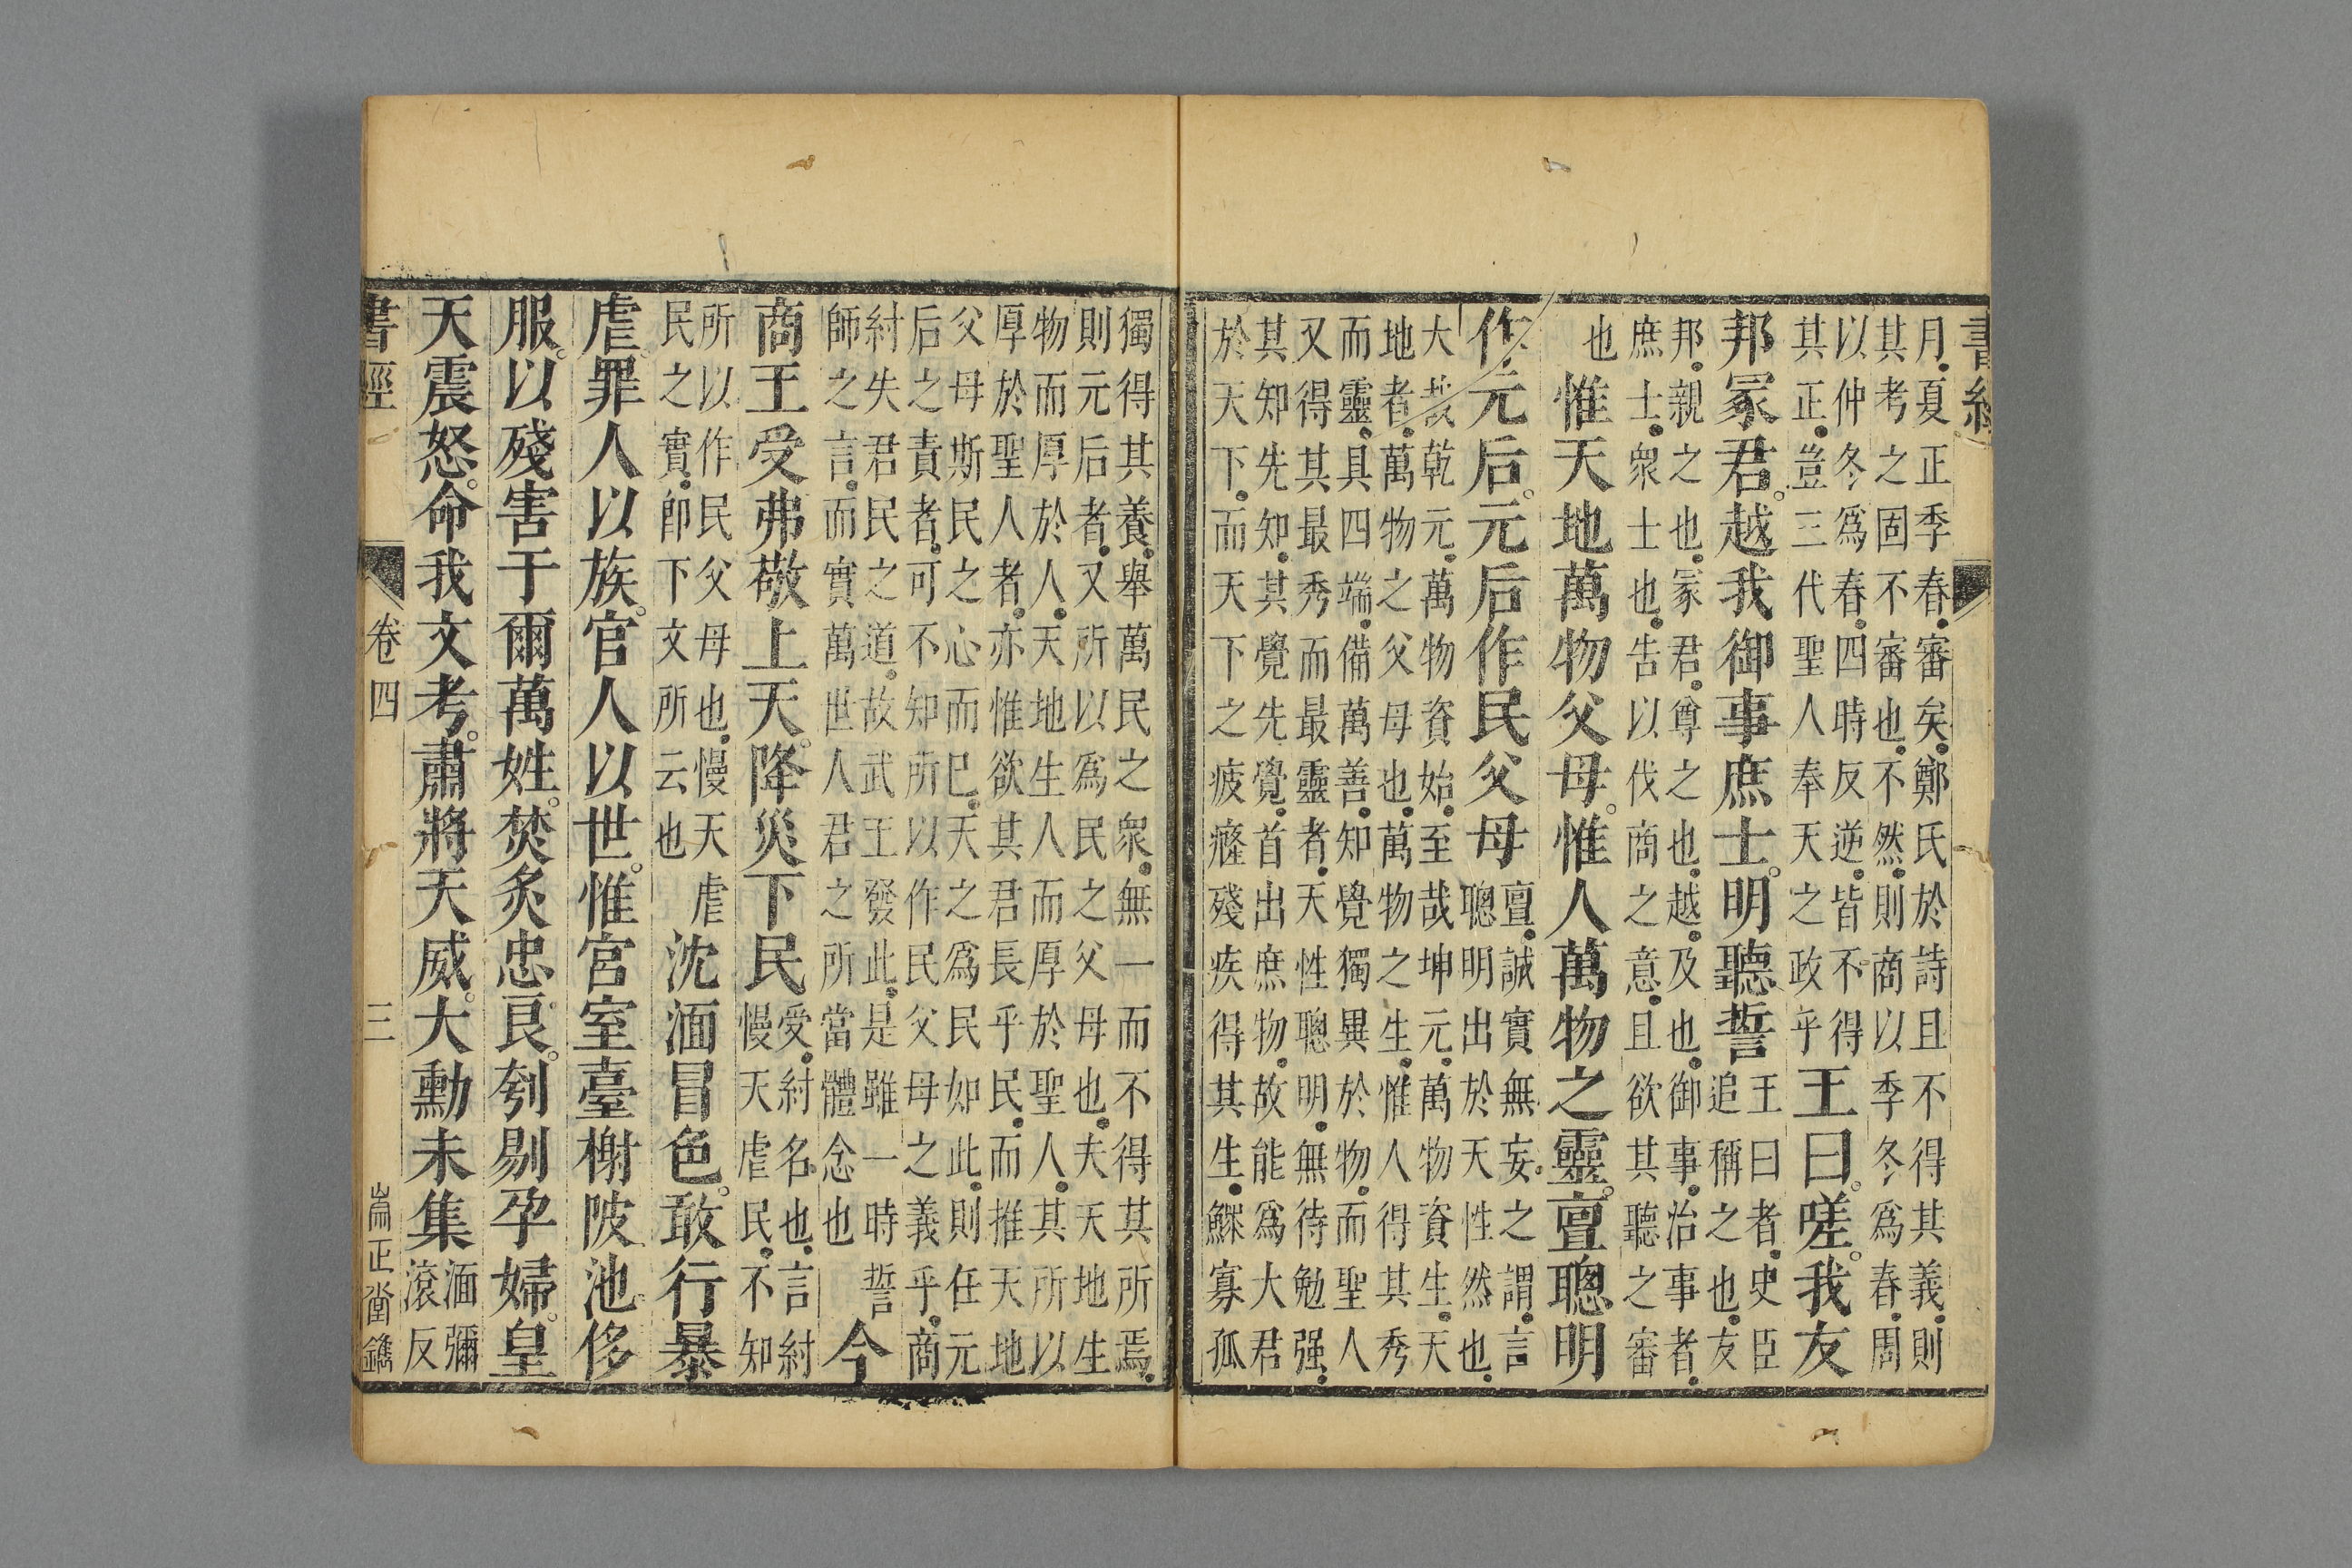 書經
月、夏正季春、審矣、鄭氏於詩且不得其義、則
其考之固不審也、不然、則商以季冬爲春、周
以仲冬爲春、四時反逆、皆不得
其正、豈三代聖人奉天之政乎
王曰。嗟。我友
邦冢君。越我御事庶士。明聽誓
王曰者、史臣
追稱之也、友
邦、親之也、冢君、尊之也、越、及也、御事、治事者、
庶士、衆士也、告以伐商之意、且欲其聽之審
也
惟天地萬物父母。惟人萬物之靈。亶聰明
作元后。元后作民父母
亶、誠實無妄之謂、言
聰明出於天性然也、
大哉乾元、萬物資始、至哉坤元、萬物資生、天
地者、萬物之父母也、萬物之生、惟人得其秀
而靈、具四端、備萬善、知覺獨異於物、而聖人
又得其最秀而最靈者、天性聰明、無待勉强、
其知先知、其覺先覺、首出庶物、故能爲大君
於天下、而天下之疲癃殘疾得其生、鰥寡孤
獨得其養、舉萬民之衆、無一而不得其所焉、
則元后者、又所以爲民之父母也、夫天地生
物而厚於人、天地生人而厚於聖人、其所以
厚於聖人者、亦惟欲其君長乎民、而推天地
父母斯民之心而已、天之爲民如此、則任元
后之責者、可不知所以作民父母之義乎、商
紂失君民之道、故武王發此、是雖一時誓
師之言、而實萬世人君之所當體念也
今
商王受弗敬上天。降災下民
受、紂名也、言紂
慢天虐民、不知
所以作民父母也、慢天虐
民之實、即下文所云也
沈湎冒色。敢行暴
虐。罪人以族。官人以世。惟宮室臺榭陂池侈
服。以殘害于爾萬姓。焚炙忠良。刳剔孕婦。皇
天震怒。命我文考。肅將天威。大勳未集
湎彌
滾反
書經 卷四 三 崙正堂鐫